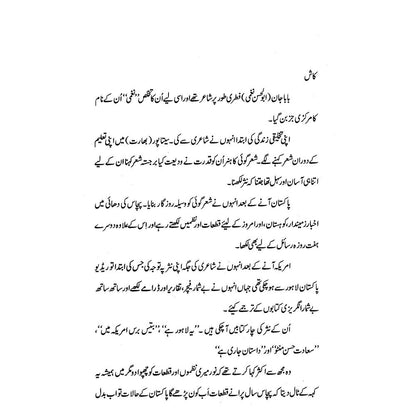 کاش
بابا جان (ابوالحسن نغمی) فطری طور پر شاعر تھے اور اسی لیے اُن کا تخلص ”نغمی“ اُن کے نام
کا مرکزی جز بن گیا۔
اپنی تخلیقی زندگی کی ابتدا انہوں نے شاعری سے کی۔ سیتا پور (بھارت) میں اپنی تعلیم
کے دوران شعر کہنے لگے۔ شعر گوئی کا ہنر اُن کو قدرت نے ودیعت کیا برجستہ شعر کہنا ان کے لیے
اتنا ہی آسان اور سہل تھا جتنا کہ نثر لکھنا۔
پاکستان آنے کے بعد انہوں نے شعر گوئی کو وسیلہ روزگار بنایا۔ پچاس کی دھائی میں
اخبار زمیندار، کوہستان، اور امروز کے لیئے قطعات اور نظمیں لکھتے رہے اور اِس کے علاوہ دوسرے
ہفت روزہ رسائل کے لیے بھی لکھا۔
امریکہ آنے کے بعد انہوں نے شاعری کی جگہ اپنی نثر پہ توجہ کی جس کی ابتدا تو ریڈیو
پاکستان لاہور سے ہو چکی تھی جہاں انہوں نے بے شمار فیچر، تقاریر اور ڈرامے لکھے اور ساتھ ساتھ
بے شمار انگریزی کتابوں کے ترجمے کیئے۔
اُن کے نثر کی چار کتابیں آ چکی ہیں۔ ”یہ لاہور ہے“، ”بتیس برس امریکہ میں“،
”سعادت حسن منٹو“ اور ”داستان جاری ہے“
وہ مجھ سے اکثر کہا کرتے تھے کہ نور میری نظموں اور قطعات کو چھپوا دو مگر میں ہمیشہ یہ
کہہ کے ٹال دیتا کہ پچاس سال پرانے قطعات اَب کون پڑھے گا پاکستان کے حالات تو اب بدل